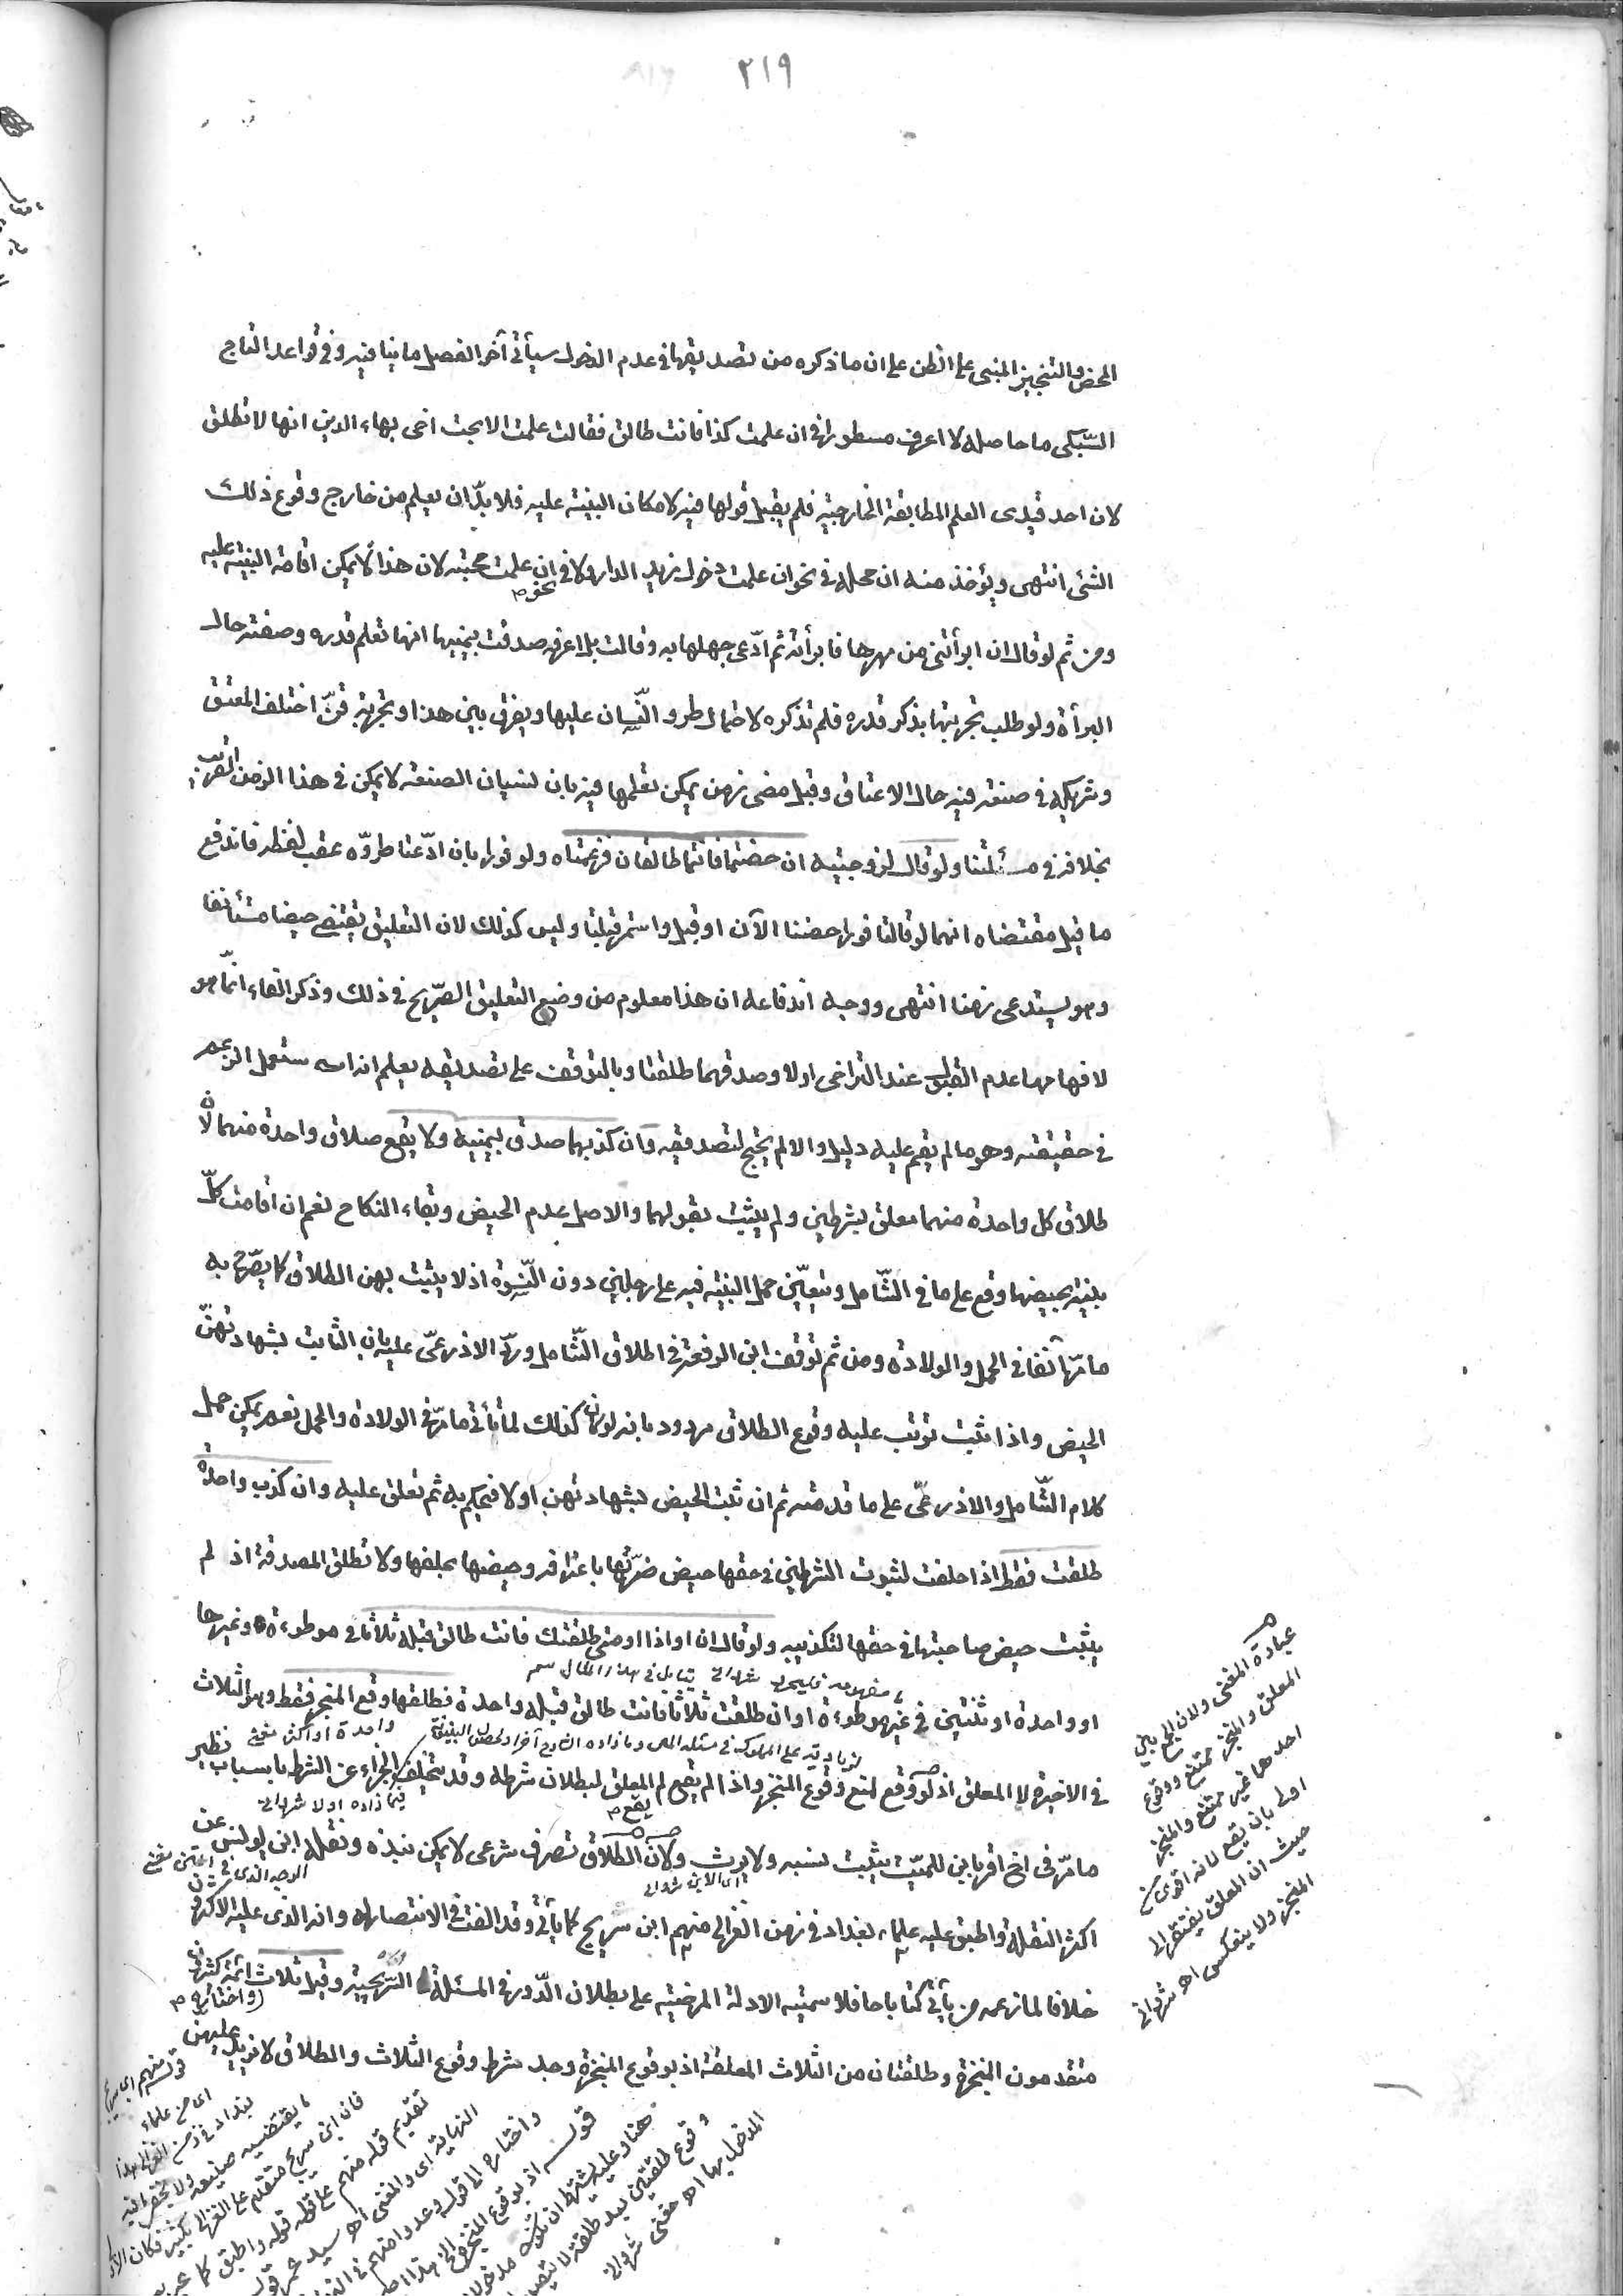 ٢١٩
المحض والتنجيز المبنى على الظن على ان ما ذكره من تصديقها فى عدم الدخول سيأتى آخر الفصل ما ينافيه وفى قواعد التاج
السّبكى ما حاصله لا اعرف مسطورا فى ان علمت كذا فانت طالق فقالت علمت الا بحث اخى بهاء الدين انها لا تطلق
لان احد قيدى العلم المطابقة الخارجية فلم يقبل قولها فيه لامكان البينة عليه فلا بدّ ان يعلم من خارج وقوع ذلك
الشئ انتهى ويؤخذ منه ان محله فى نحو ان علمت دخول زيد الدار لا فى نحو ان علمت محبته لان هذا لا يمكن اقامة البينة عليه
ومن ثم لو قال ان ابرأتنى من مهرها فابرأته ثم ادّعى جهلها به وقالت بل اعرفه صدقت بيمينها انها تعلم قدره وصفته حال
البرأة ولو طلب تجربتها بذكر قدره فلم تذكره لاحتمال طرو النّسيان عليها ويفرق بين هذا وتجربة قنّ اختلف المعتق
وشريكه فى صنعة فيه حال الاعتاق وقبل مضى زمن يمكن تعلمها فيه بان نسيان الصنعة لا يمكن فى هذا الزمن القريب
بخلافه فى مسئلتنا ولو قال لزوجتيه ان حضتما فانتما طالقان فزعمتاه ولو فورا بان ادّعتا طروّه عقب لفظه فاندفع
ما قيل مقتضاه انهما لو قالتا فورا حضنا الآن او قبل واستمر قبلتا وليس كذلك لان التعليق يقتضى حيضا مستأنفا
وهو يستدعى زمنا انتهى ووجه اندفاعه ان هذا معلوم من وضع التعليق الصّريح فى ذلك وذكر الفاء انّما هو
لافهامها عدم القبول عند التراخى اولا وصدقهما طلقتا وبالتوقف على تصديقه يعلم انه استعمل الزعم
فى حقيقته وهو ما لم يقم عليه دليل والا لم يحتج لتصديقه وان كذبهما صدق بيمينه ولا يقع طلاق واحدة منهما لان
طلاق كل واحدة منهما معلق بشرطين ولم يثبت بقولهما والاصل عدم الحيض وبقاء النكاح نعم ان اقامت كلّ
بينة بحيضها وقع على ما فى الشّامل ويتعيّن حمل البينة فيه على رجلين دون النّسوة اذ لا يثبت بهن الطلاق كما يصرّح به
ما مرّ آنفا فى الحمل والولادة ومن ثم توقف ابن الرفعة فى اطلاق الشّامل وردّ الاذرعىّ عليه بان الثابت بشهادتهنّ
الحيض واذا ثبت ترتب عليه وقوع الطلاق مردود بانه لو كان كذلك لم يأتى ما مرّ فى الولادة والحمل نعم يمكن حمل
كلام الشّامل والاذرعىّ على ما قدمته ثم ان ثبت الحيض بشهادتهن اولا فيحكم به ثم تعلق عليه وان كذب واحدة
طلقت فقط اذا حلفت لثبوت الشرطين فى حقها حيض ضرّتها باعترافه وحيضها بحلفها ولا تطلق المصدقة اذ لم
يثبت حيض صاحبتها فى حقها لتكذيبه ولو قال ان او اذا او متى طلقتك فانت طالق قبله ثلاثا فى موطوءة وغيرها
او واحدة او ثنتين فى غير موطوءة او ان طلقت ثلاثا فانت طالق قبله واحدة فطلقها وقع المنجز فقط وهو الثلاث
فى الاخيرة لا المعلق اذ لو وقع لمنع وقوع المنجز واذا لم يقع لم يقع المعلق لبطلان شرطه وقد يتخلف الجزاء عن الشرط باسباب نظير
ما مرّ فى اخ اقر بابن للميّت يثبت نسبه ولا يرث ولان الطلاق تصرف شرعى لا يمكن نبذه ونقله ابن يونس عن
اكثر النقلة واطبق عليه علماء بغداد فى زمن الغزالى منهم ابن سريج كما يأتى وقد الفت فى الانتصار له وانه الذى عليه الاكثرون
خلافا لما زعمه من يأتى كتابا حافلا سميته الادلة المرضية على بطلان الدّور فى المسئلة السّريجية وقيل ثلاث واختاره ائمة كثيرون
متقدمون المنجزة وطلقتان من الثلاث المعلقة اذ بوقوع المنجزة وجد شرط وقوع الثلاث والطلاق لا يزيد عليهن
عبارة المغنى ولان الجمع بين
المعلق والمنجز ممتنع ووقوع
احدهما غير ممتنع والمنجز
اولى بان يقع لانه اقوى من
حيث ان المعلق يفتقر الى
المنجز ولا ينعكس اه شروانى